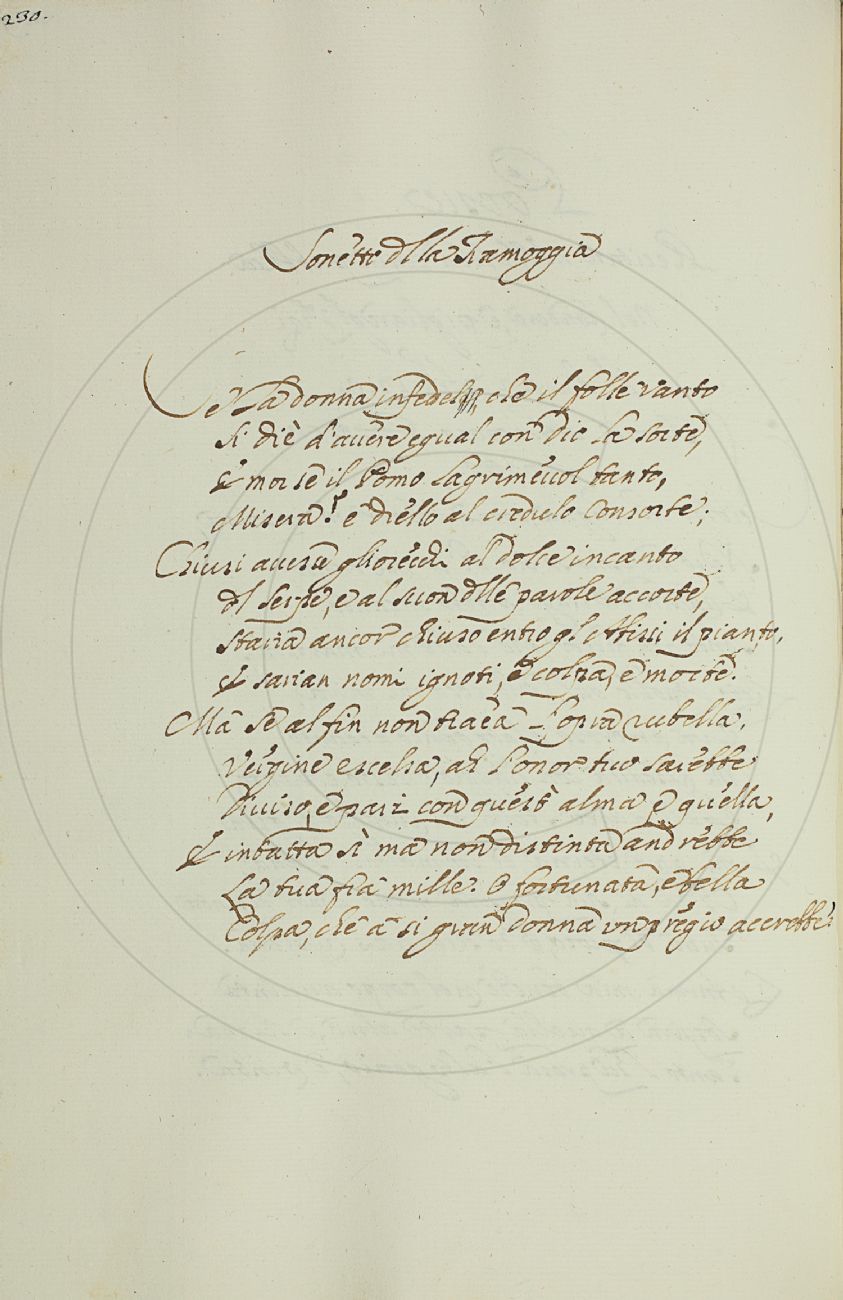 230.
Sonetto dlla Ramoggia
Se la donna infedel, che il folle vanto
si diè d'avere egual con Dio la sorte,
E morse il Pomo lagrimevol tanto,
Misera! e diello al credulo Consorte;
Chiusi avesse gli orecchi al dolce incanto
dl serpe, e al suon dlle parole accorte,
staria ancor chiuso entro gl'Abissi il pianto,
E sarian nomi ignoti, e colpa, e morte.
Ma se al fin non traea l'opra rubella,
Vergine eccelsa, ah l'onor tuo sarebbe
Diviso, e pari con quest'alma e quella,
E intatta sì ma non distinta andrebbe
La tua fra mille. O fortunata, e bella
Colpa, che a si gran donna un pregio accrebbe!